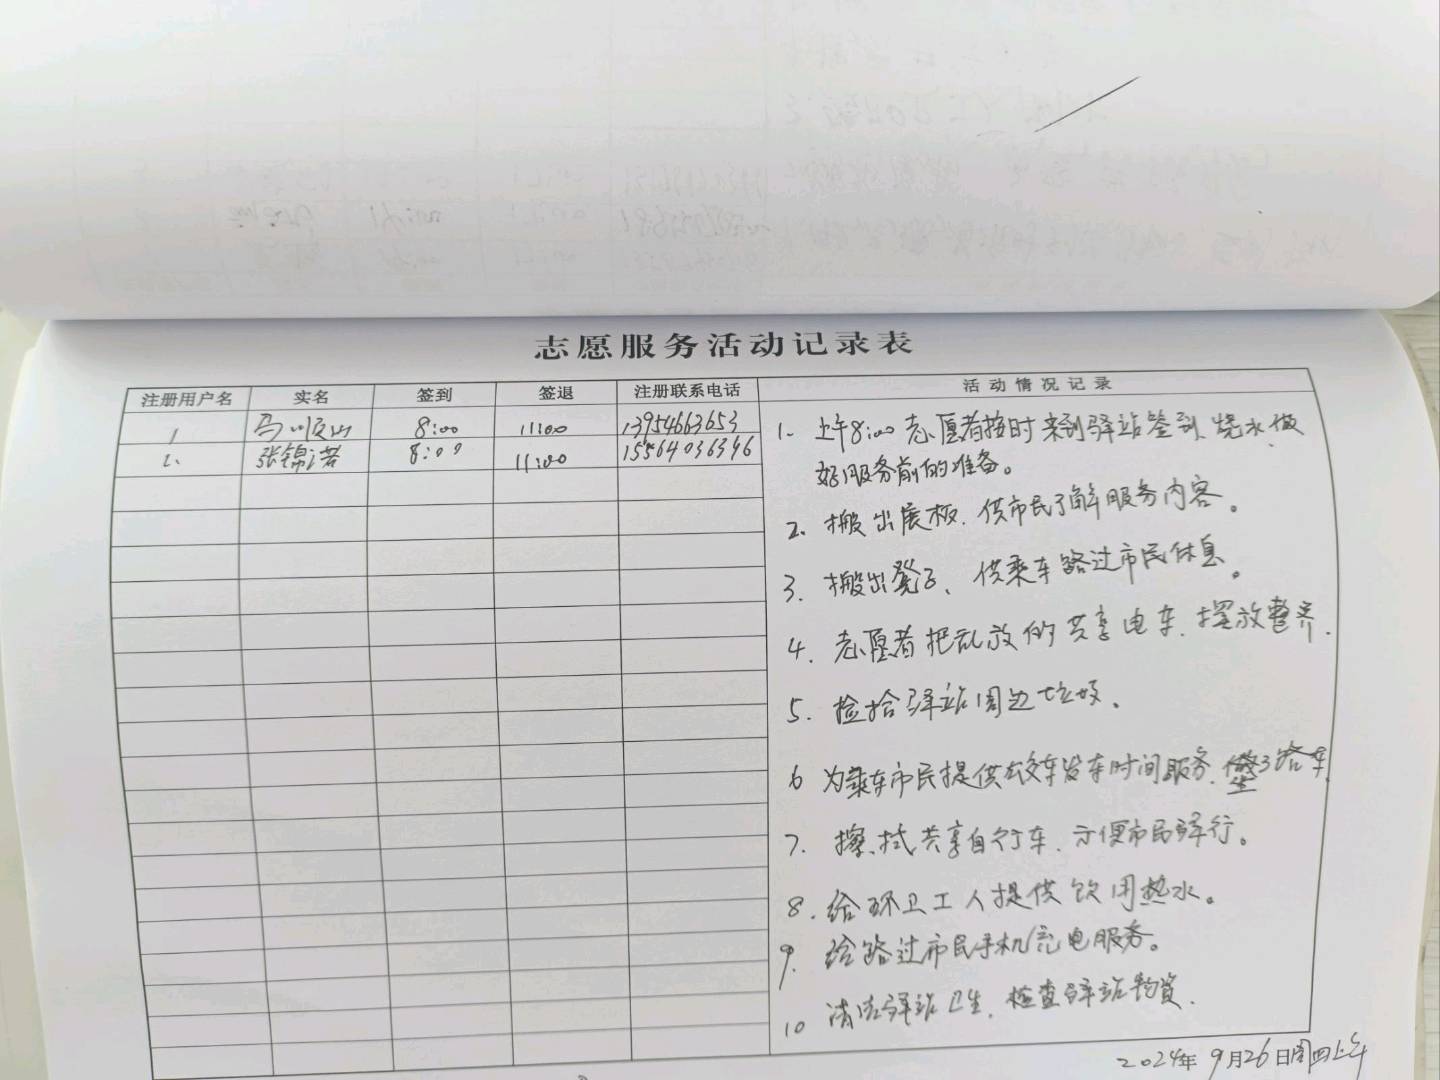 志愿服务活动记录表
注册用户名 实名 签到 签退 注册联系电话 活动情况记录
1 马顺山 8:00 11:00 13954663653
2. 张锦诺 8:00 11:00 15564036396
1. 上午8:00志愿者按时来到驿站签到,烧水,做
好服务前的准备。
2. 搬出展板,供市民了解服务内容。
3. 搬出凳子,供乘车路过市民休息。
4. 志愿者把乱放的共享电车,摆放整齐.
5. 捡拾驿站周边垃圾.
6 为乘车市民提供公交车发车时间服务,路车
7. 擦拭共享自行车,方便市民骑行。
8. 给环卫工人提供饮用热水。
9. 给路过市民手机充电服务。
10 清洁驿站卫生,检查驿站物资.
2024年9月26日周四上午